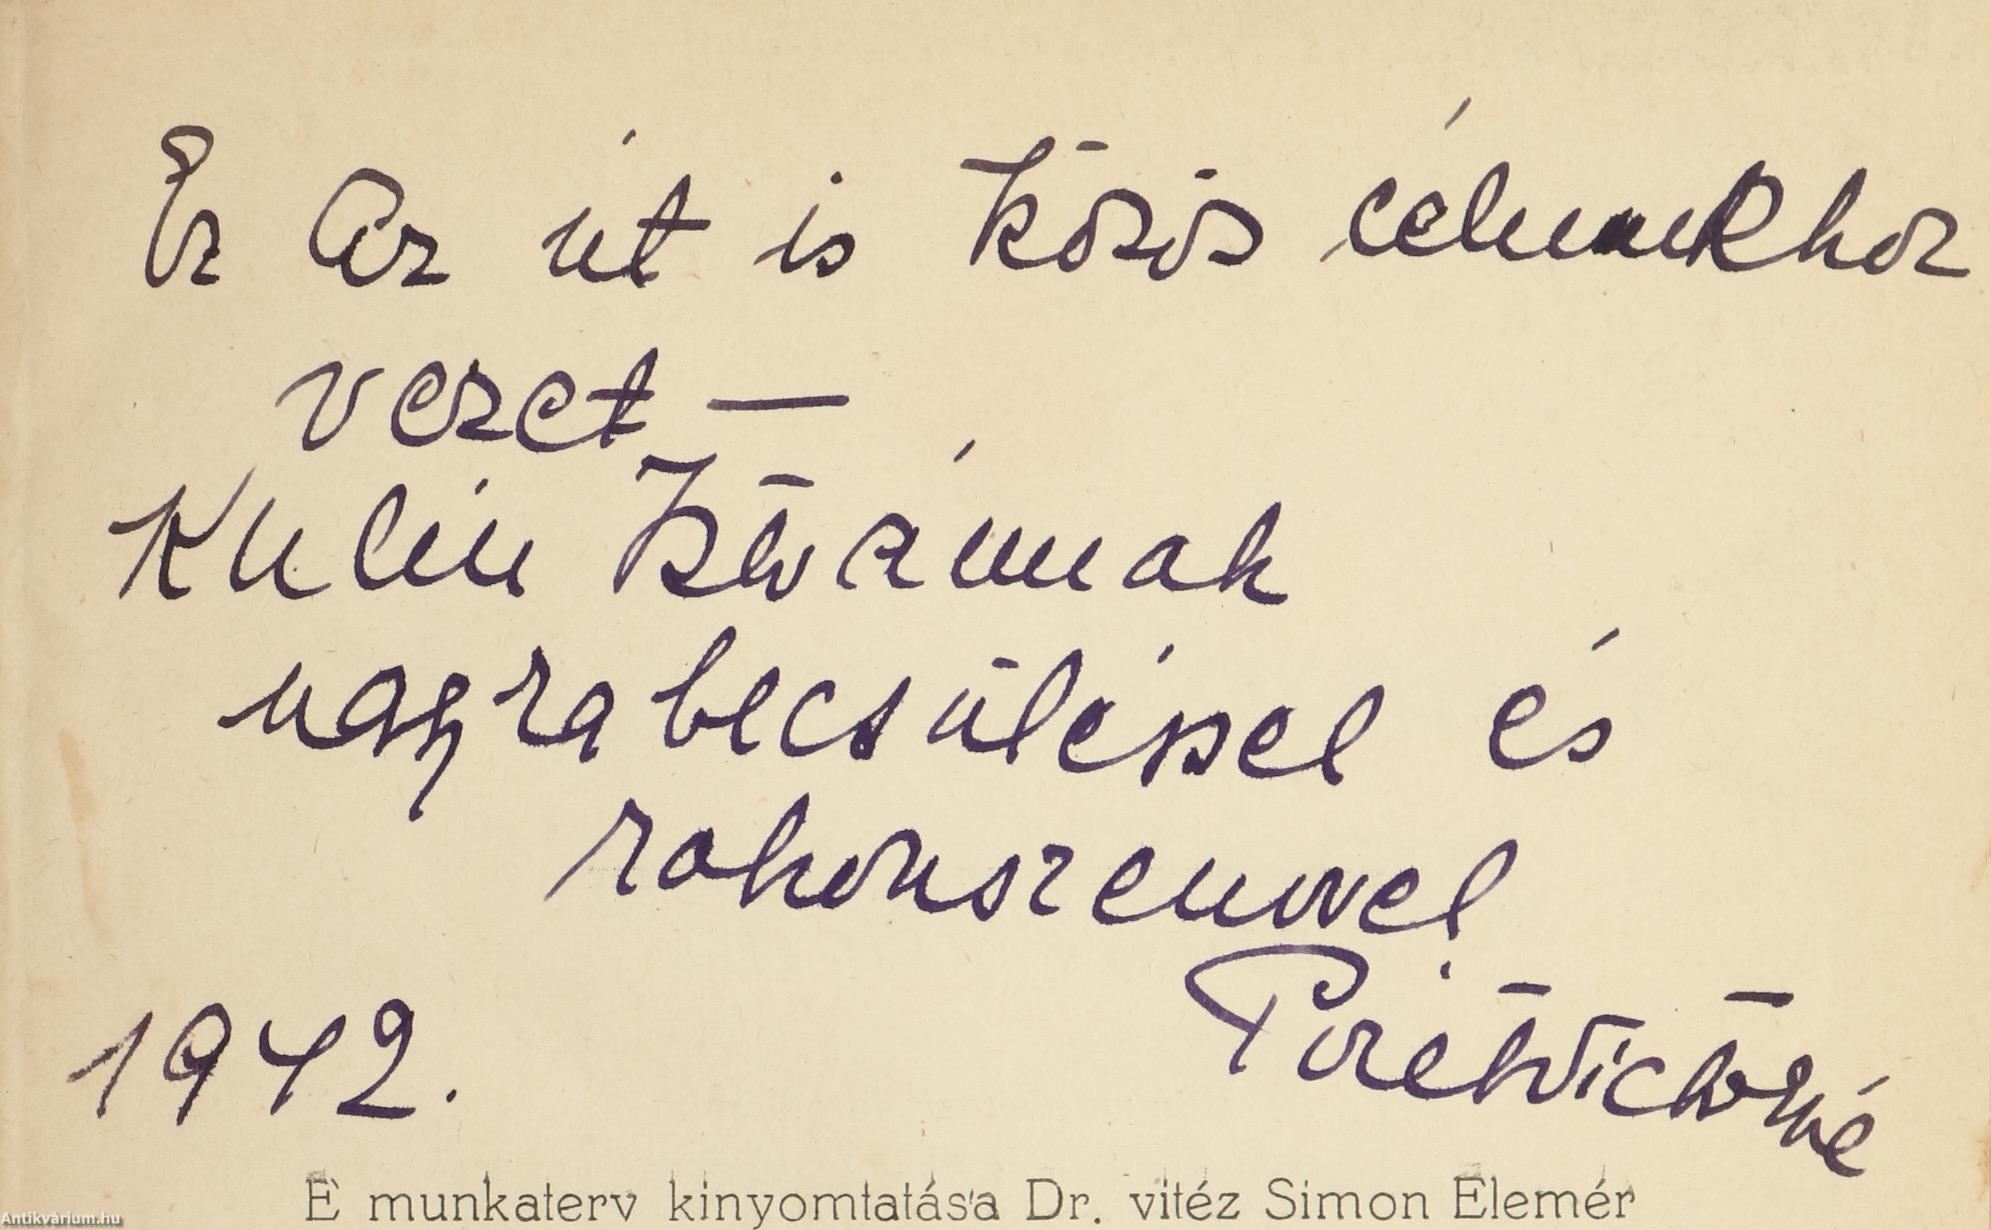 Ez az út is közös célunkhoz
vezet —
Kulin Istvánnak
nagyrabecsüléssel és
rokonszenvvel
1942.
E munkaterv kinyomtatása Dr. vitéz Simon Elemér
Antikvárium.hu